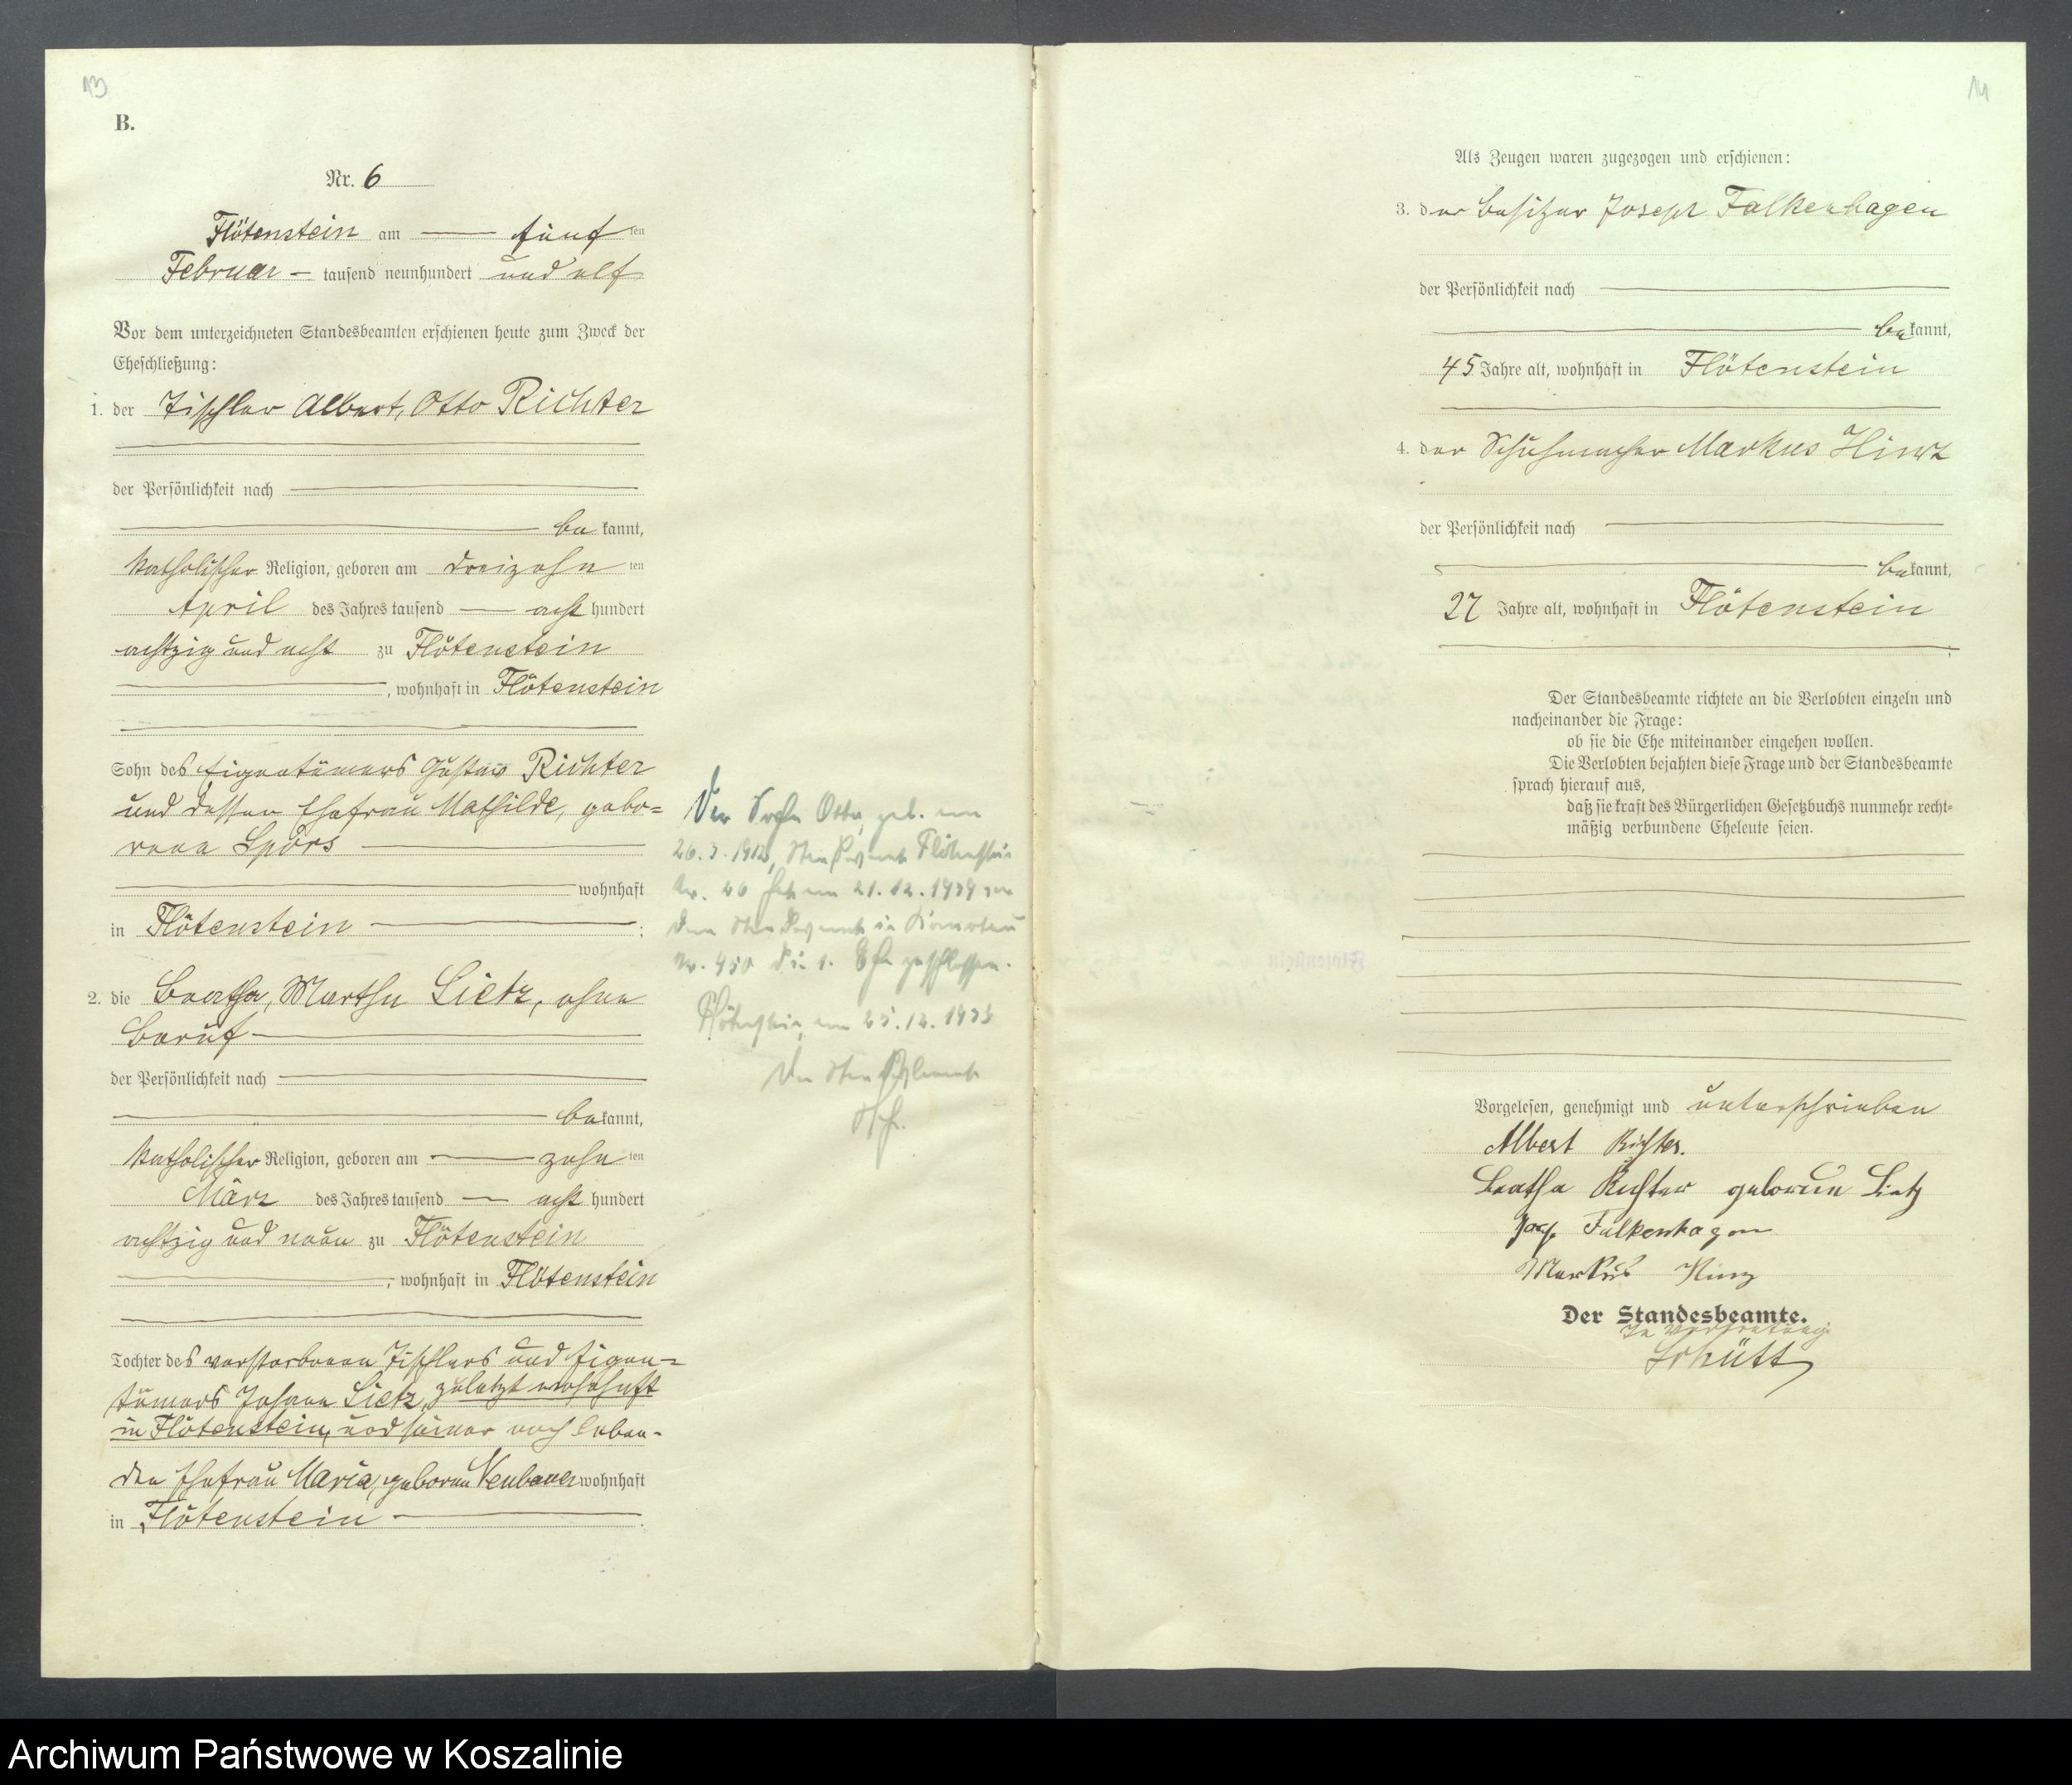 13
B.
Nr. 6
Flötenstein am fünf ten
Februar tausend neunhundert und elf
Vor dem unterzeichneten Standesbeamten erschienen heute zum Zweck der
Eheschließung:
1. der Tischler Albert, Otto Richter
der Persönlichkeit nach
be kannt,
katholischer Religion, geboren am dreizehn ten
April des Jahres tausend acht hundert
achtzig und acht zu Flötenstein
, wohnhaft in Flötenstein
Sohn des Eigentümers Gustav Richter
und dessen Ehefrau Mathilde, gebo=
rene Spors
wohnhaft
in Flötenstein ;
2. die Beatha, Martha Lietz, ohne
Beruf
der Persönlichkeit nach
bekannt,
katholischer Religion, geboren am zehn ten
März des Jahres tausend acht hundert
achtzig und neun zu Flötenstein
, wohnhaft in Flötenstein
Tochter des verstorbenen Tischlers und Eigen=
tümers Johann Lietz, zuletzt wohnhaft
in Flötenstein, und seiner noch leben-
den Ehefrau Maria, geborene Neubauer wohnhaft
in Flötenstein .
Der Sohn Otto, geb. am
26. 3. Standesamt Flötenstein
Nr. 26 hat am 21. 12. 1939 vor
dem Standesamt in
Nr. 450 die 1. Ehe geschlossen.
Flötenstein, am 25. 12.
Der Standesbeamte
14
Als Zeugen waren zugezogen und erschienen:
3. der Besitzer Joseph Falkenhagen
der Persönlichkeit nach
bekannt,
45 Jahre alt, wohnhaft in Flötenstein
4. der Schuhmacher Markus Hintz
der Persönlichkeit nach
bekannt,
27 Jahre alt, wohnhaft in Flötenstein
Der Standesbeamte richtete an die Verlobten einzeln und
nacheinander die Frage:
ob sie die Ehe miteinander eingehen wollen.
Die Verlobten bejahten diese Frage und der Standesbeamte
sprach hierauf aus,
daß sie kraft des Bürgerlichen Gesetzbuchs nunmehr recht=
mäßig verbundene Eheleute seien.
Vorgelesen, genehmigt und unterschrieben
Albert Richter.
Beatha Richter geborene Lietz
Josef Falkenhagen
Markus Hinz
Der Standesbeamte.
In Vertretung
Schütt
Archiwum Państwowe w Koszalinie